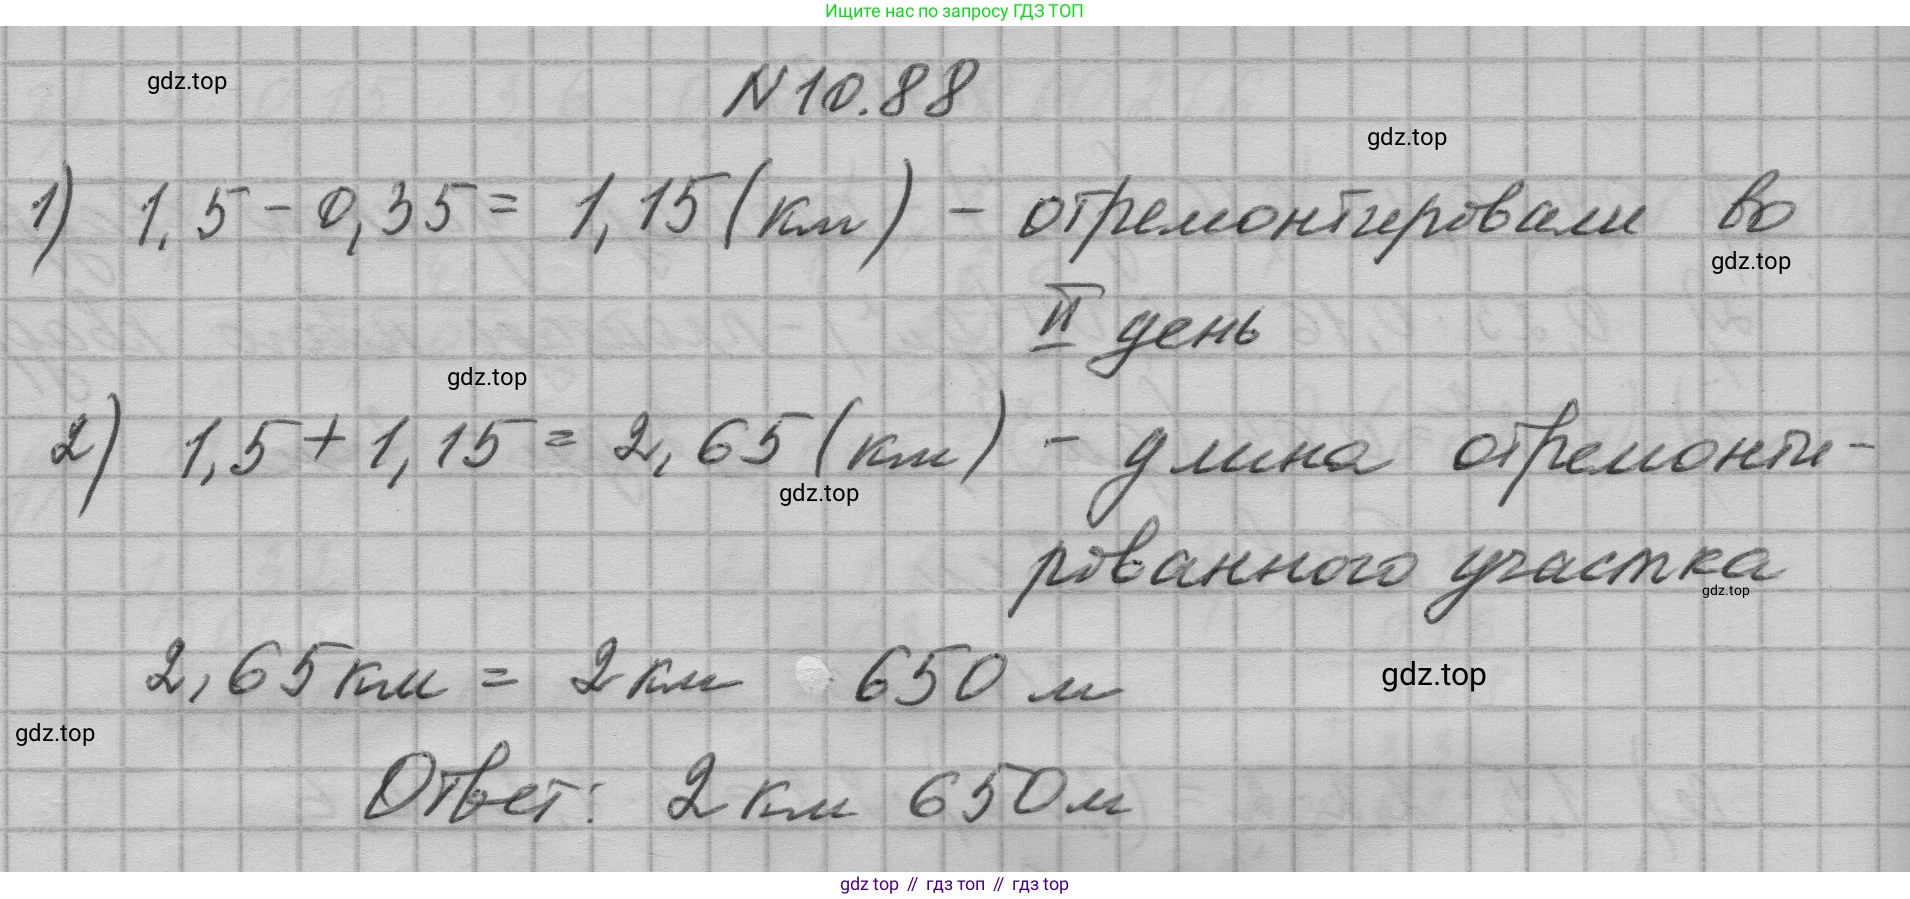 Ищите нас по запросу ГДЗ ТОП
N10.88
gdz.top
gdz.top
1) 1,5 - 0,35 = 1,15 (км) - отремонтировали во
gdz.top
II день
gdz.top
2) 1,5 + 1,15 = 2,65 (км) - длина отремонти-
gdz.top
рованного участка
gdz.top
2,65 км = 2 км 650 м
gdz.top
gdz.top
Ответ: 2 км 650 м
gdz top // гдз топ // гдз top